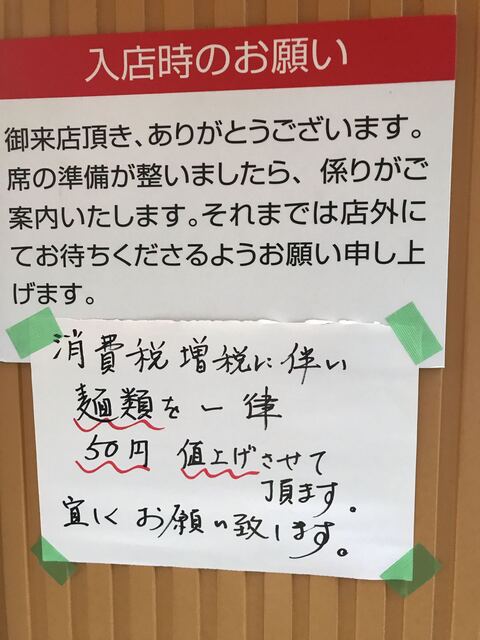 入店時のお願い
御来店頂き、ありがとうございます。
席の準備が整いましたら、係りがご
案内いたします。それまでは店外に
てお待ちくださるようお願い申し上
げます。
消費税増税に伴い
麺類を一律
50円 値上げさせて
頂ます。
宜しくお願い致します。